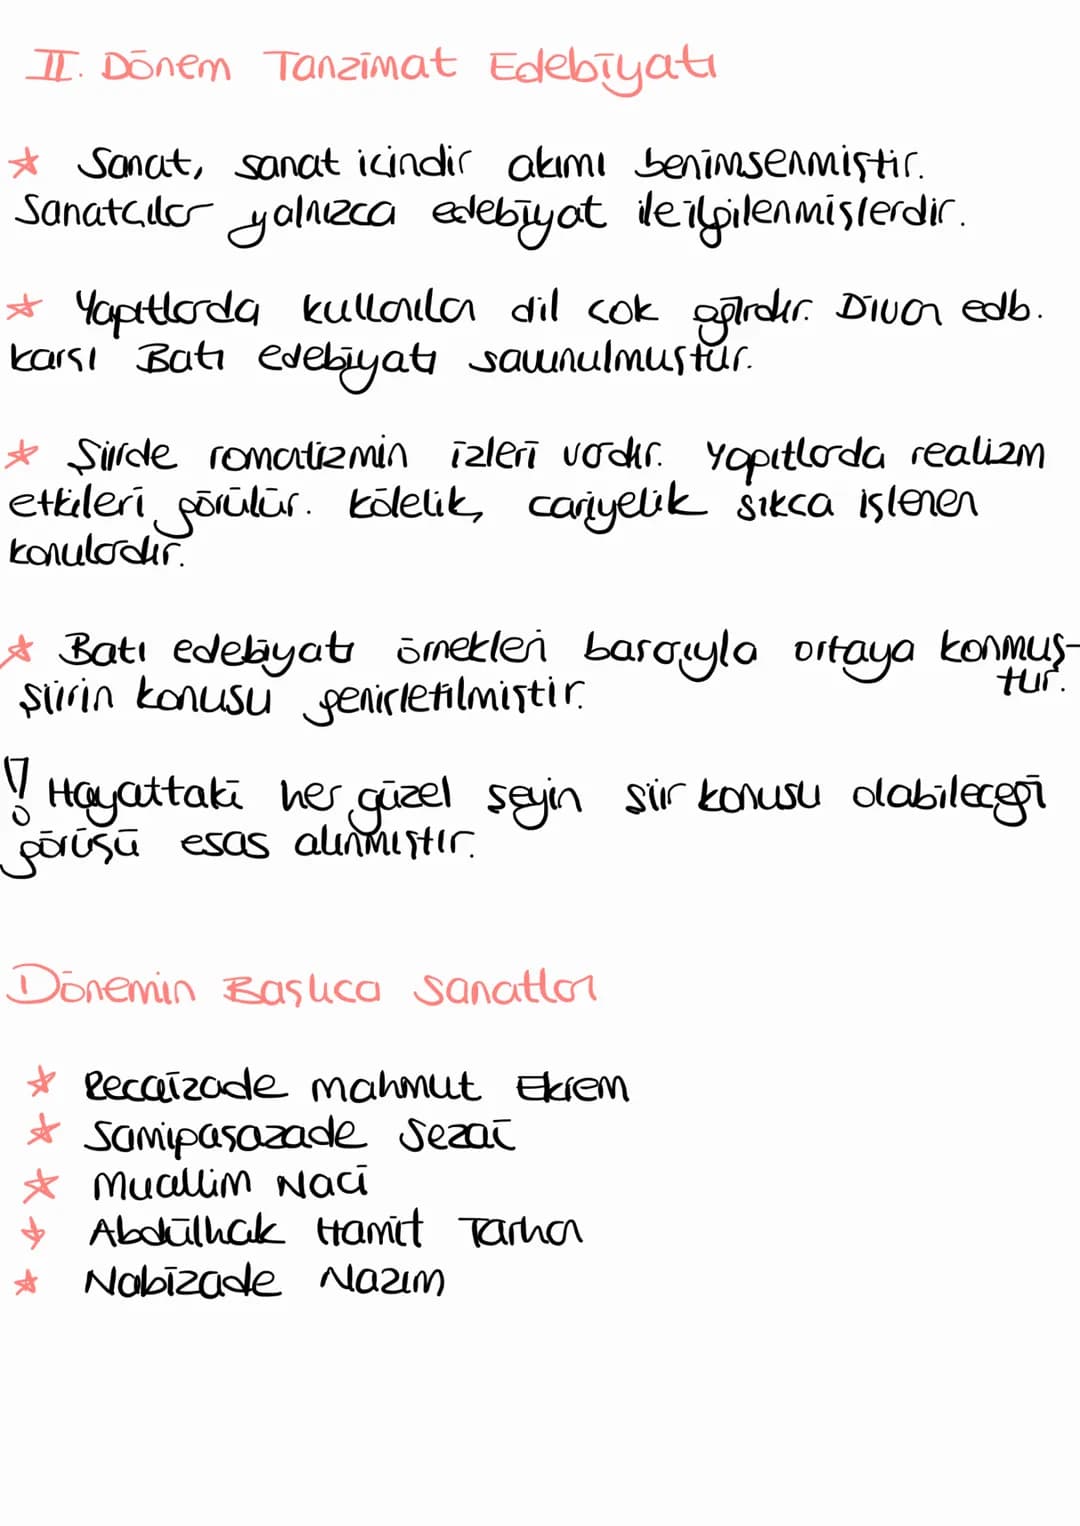 II. Dönem Tanzimat Edebiyatı
Sanat, sanat icindir akımı benimsenmiştir.
Sanatcılar yalnızca edebiyat ile ilgilenmişlerdir.
Yapıtlarda kullanılan dil cok ağırdır. Divan edb.
karşı Batı edebiyatı savunulmuştur.
Şiirde romatizmin izleri vardır. Yapıtlarda realizm
etkileri görülür. Kölelik, cariyelik sıkca işlenen
konulardır.
Batı edebiyatı örnekleri barayla ortaya konmuş-
tur.
şiirin konusu genişletilmiştir.
! Hayattaki her güzel şeyin şiir konusu olabileceği
görüşü esas alınmıştır.
Dönemin Başlıca Sanatları
Recaizade mahmut Ekrem
Samipaşazade Sezai
Muallim Naci
Abdülhak Hamit Tarhan
Nabizade Nazım